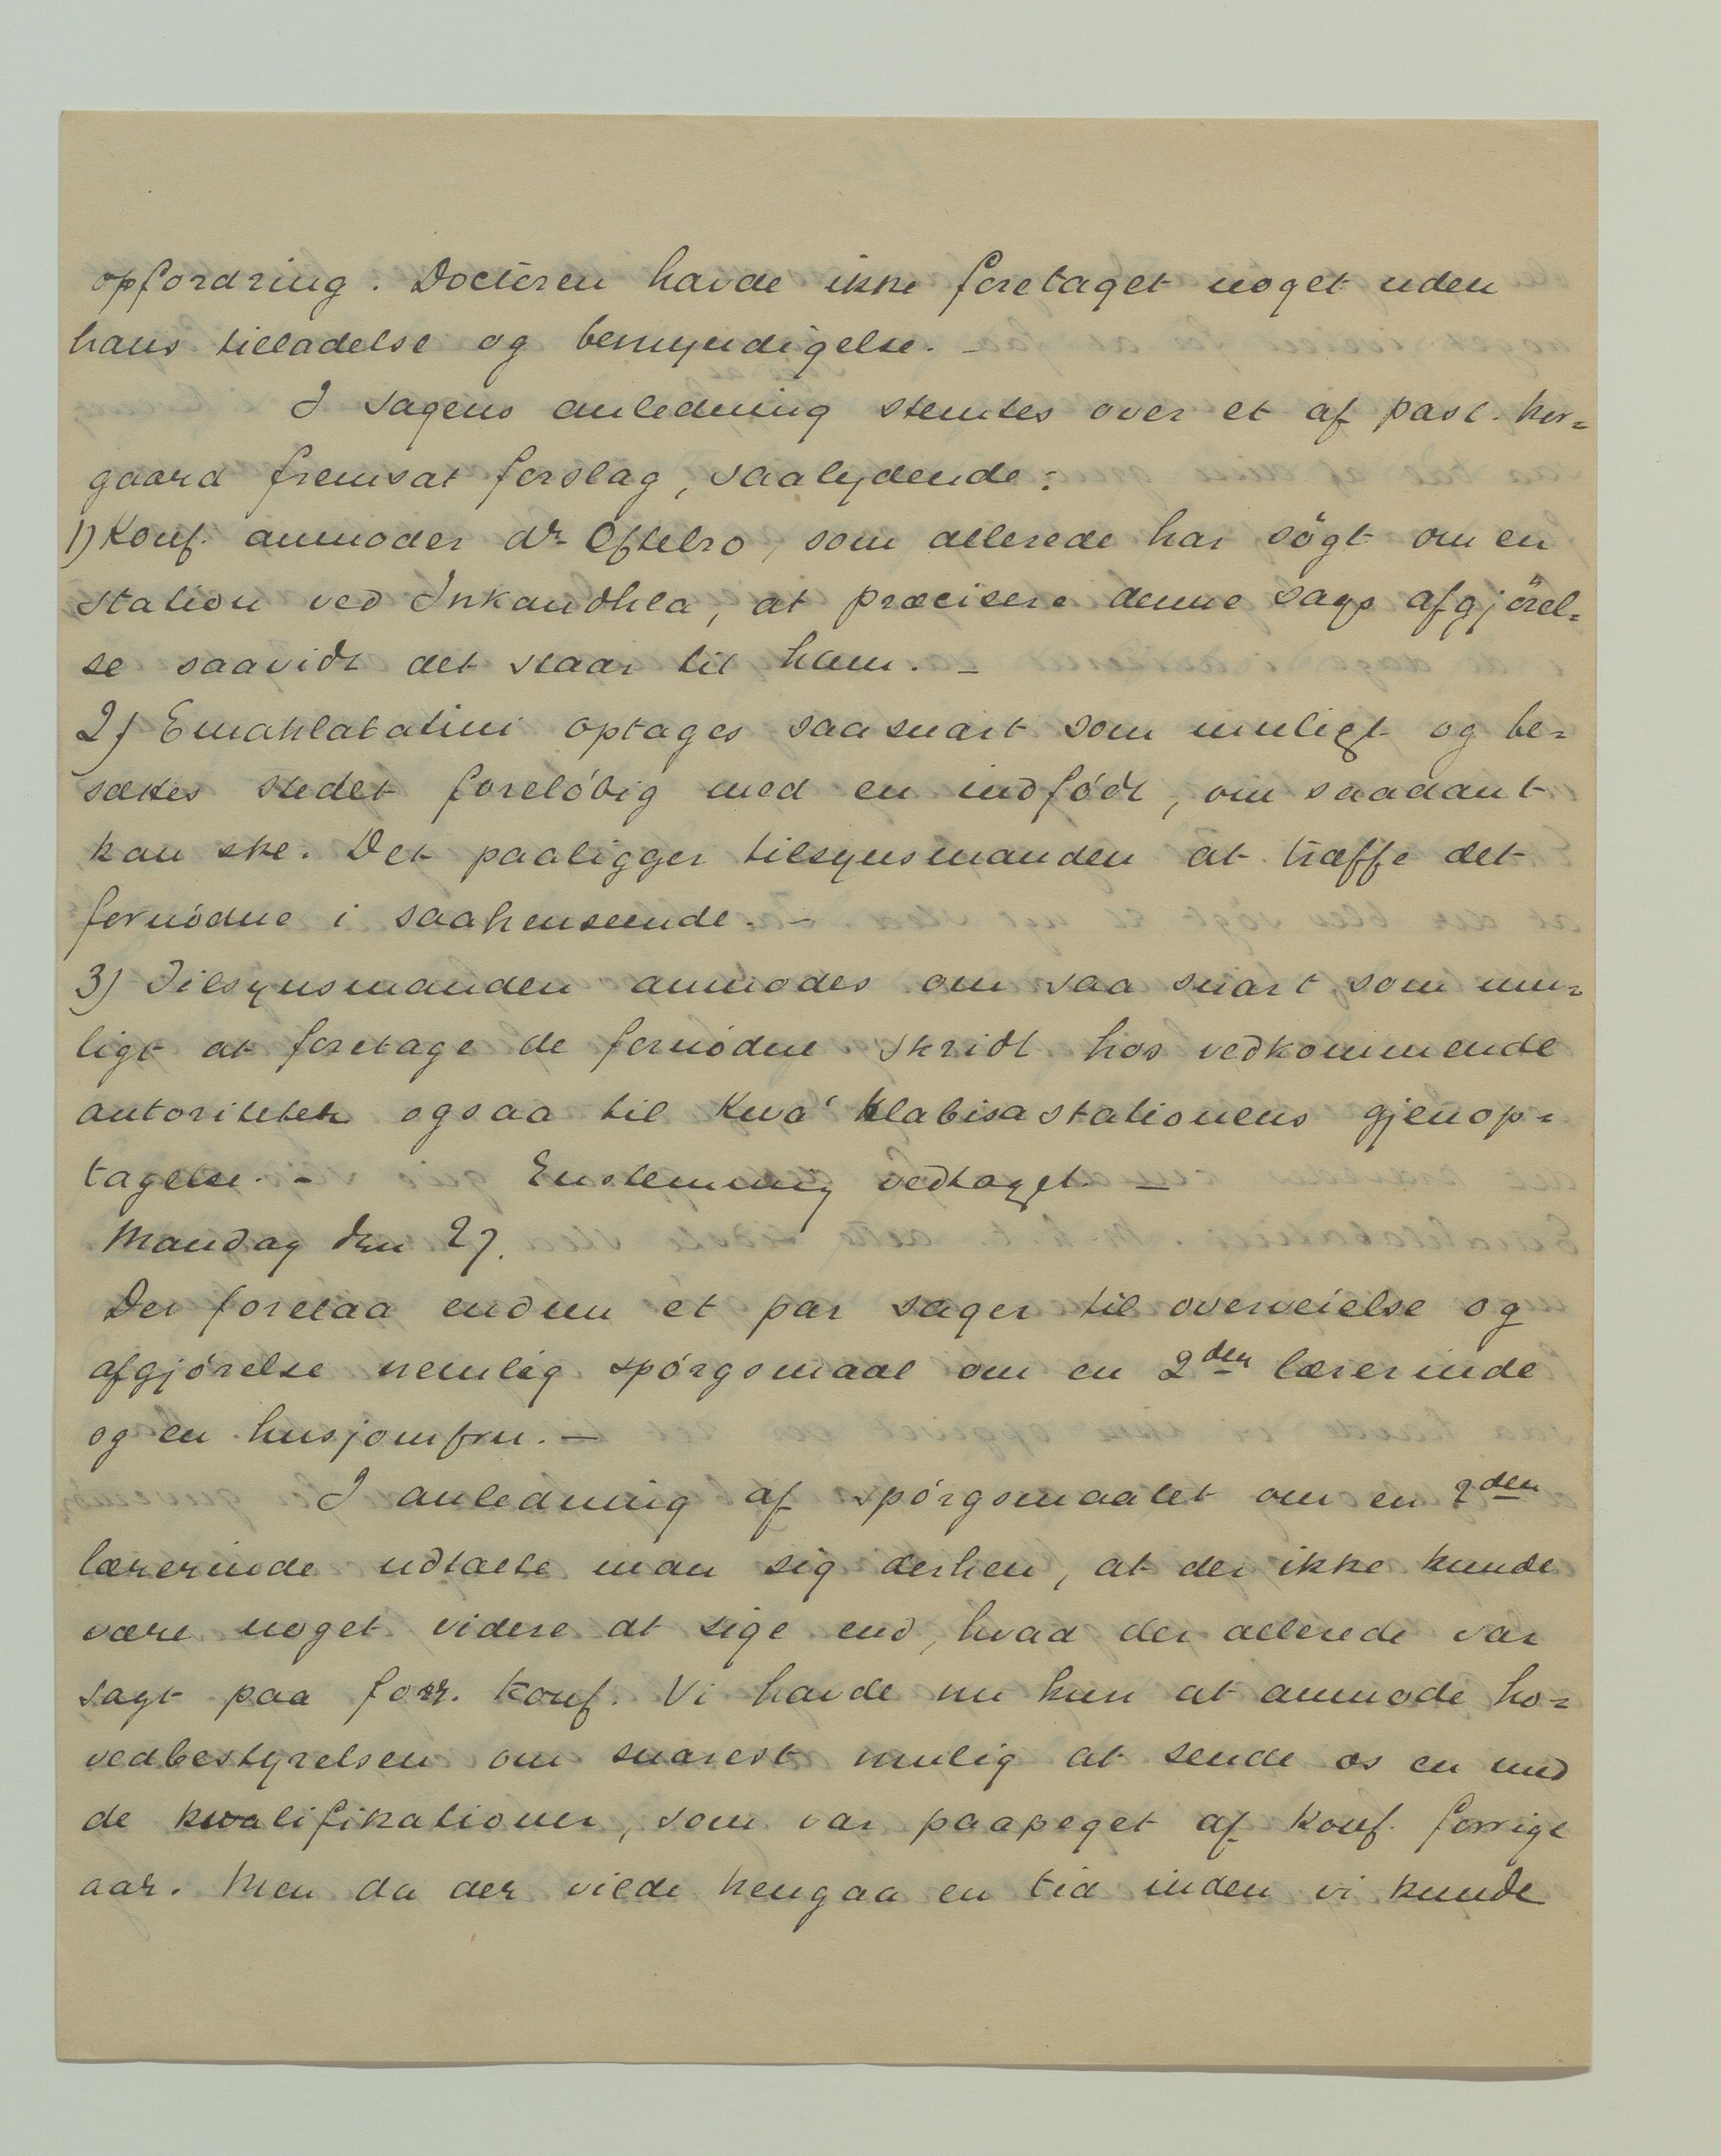 opfordring. Doctoren havde ikke foretaget noget uden
hans tilladelse og bemyndigelse. –
I sagens anledning stemtes over et af past. Kor=
gaard fremsat forslag, saalydende:
1) Konf. anmoder dr Oftebro, som allerede har søgt om en
station ved Inkandhla, at præcisere denne sags afgjørel=
se saavidt det staar til ham. –
2) Emahlabatini optages saa snart som muligt og be=
sættes stedet foreløbig med en indfødt, om saadant
kan ske. Det paaligger tilsynsmanden at træffe det
fornødne i saa henseende. –
3) Tilsynsmanden anmodes om saa snart som mu=
ligt at foretage de fornødne skridt hos vedkommende
autoriteter ogsaa til Kwa' Hlabisastationens gjenop=
tagelse. – Enstemmig vedtaget. –
Mandag den 27.
Der forelaa endnu et par sager til overveielse og
afgjørelse nemlig spørgsmaal om en 2den lærerinde
og en husjomfru. –
I anledning af spørgsmaalet om en 2den
lærerinde udtalte man sig derhen, at der ikke kunde
være noget videre at sige end, hvad der allerede var
sagt paa forr. konf. Vi havde nu kun at anmode ho=
vedbestyrelsen om snarest mulig at sende os en med
de kwalifikationer, som var paapeget af konf. forrige
aar. Men da der vilde hengaa en tid inden vi kunde